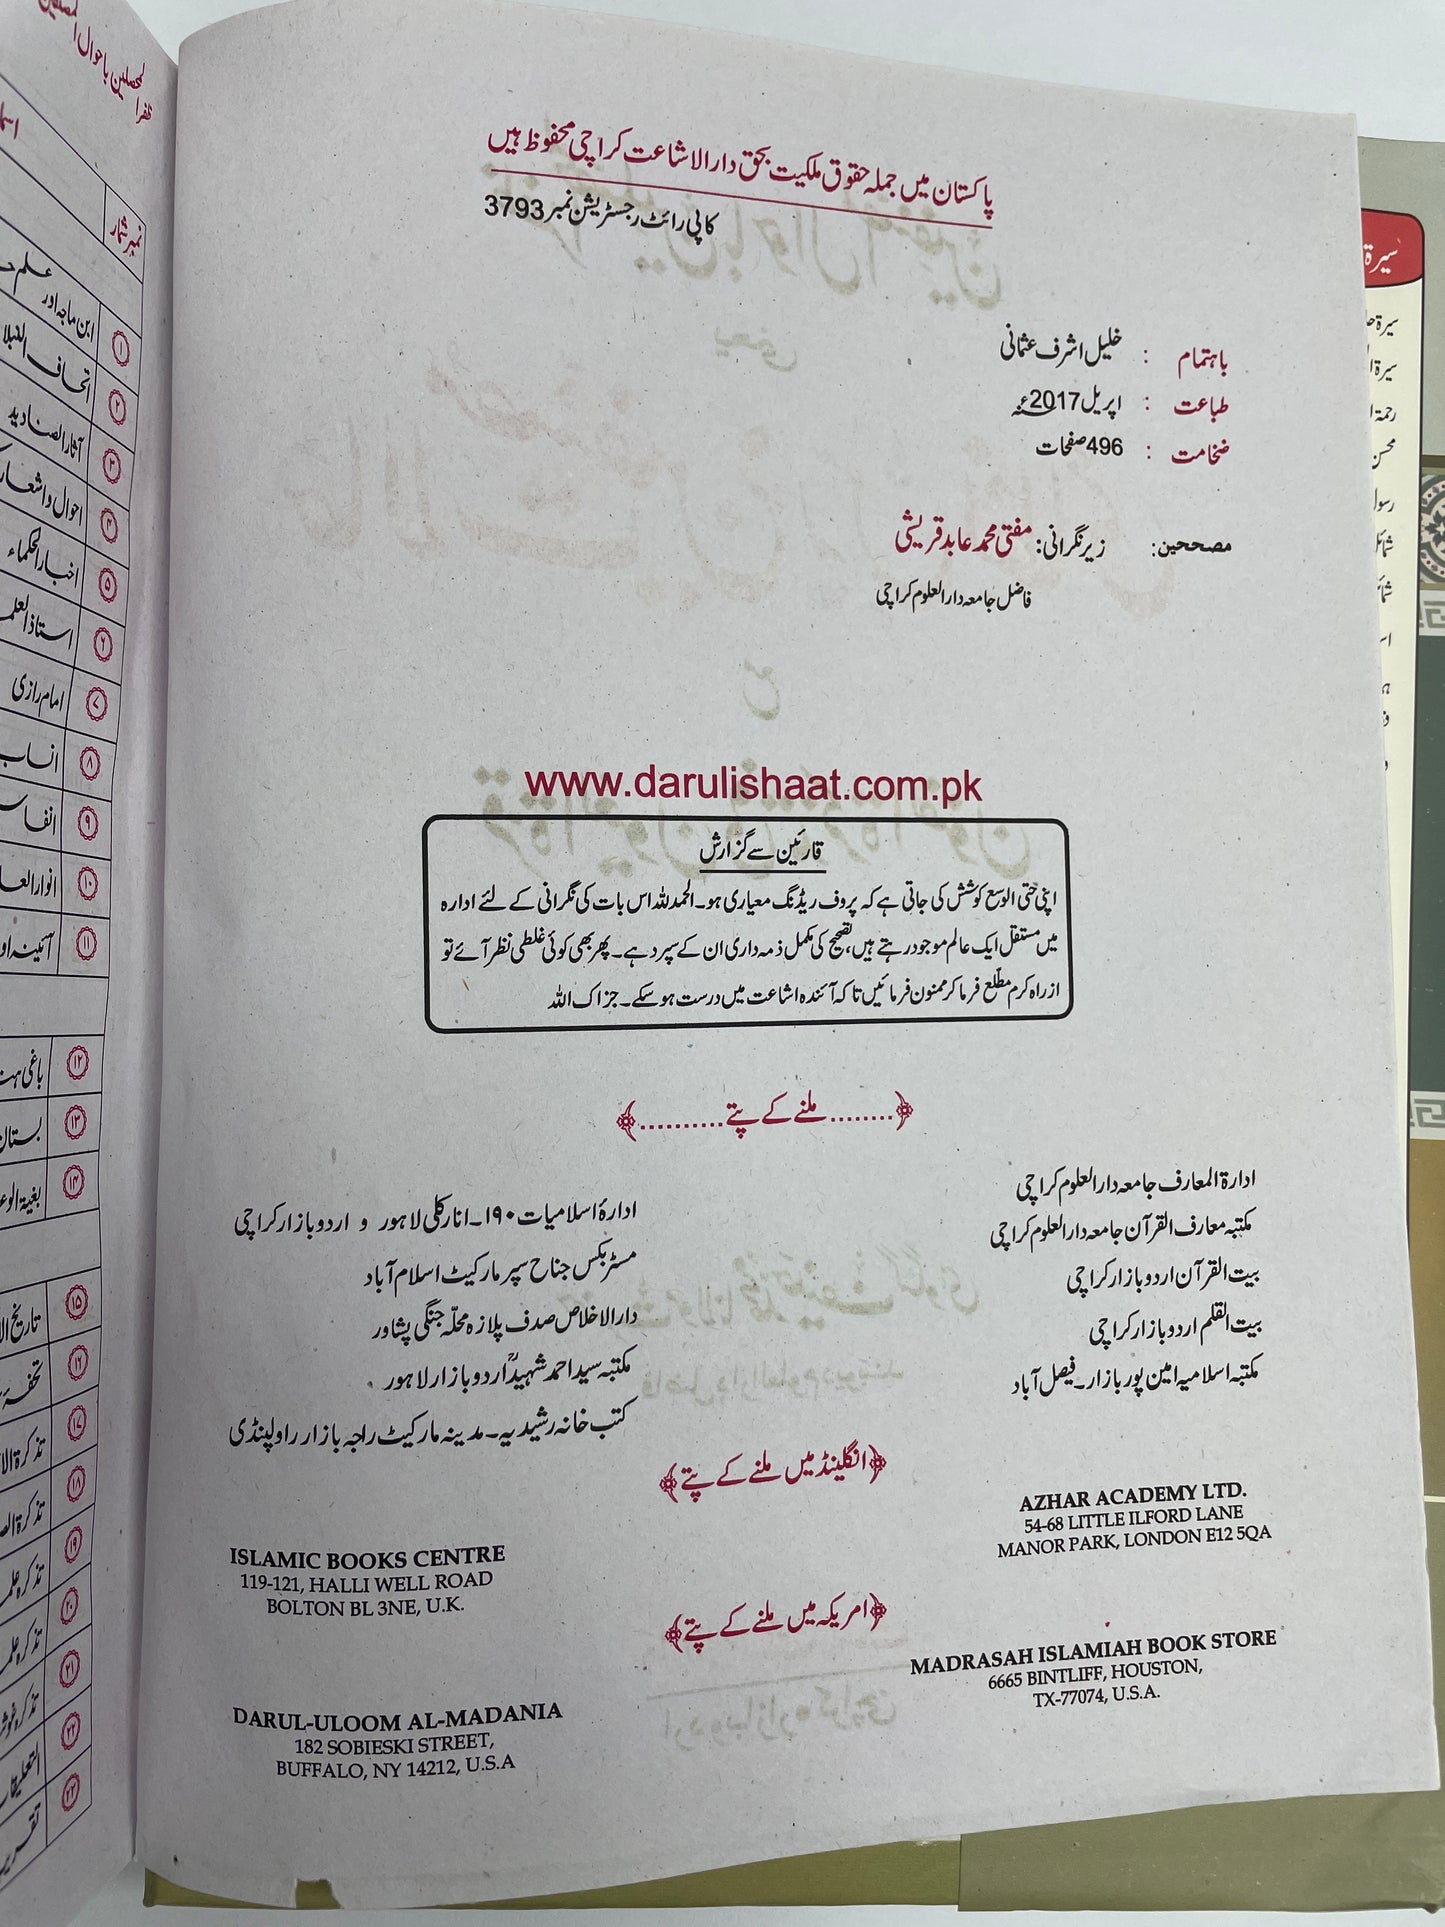 پاکستان میں جملہ حقوق ملکیت بحق دارالاشاعت کراچی محفوظ ہیں
کاپی رائٹ رجسٹریشن نمبر 3793
باہتمام : خلیل اشرف عثمانی
طباعت : اپریل 2017ء
ضخامت : 496 صفحات
مصححین: زیر نگرانی: مفتی محمد عابد قریشی
فاضل جامعہ دارالعلوم کراچی
www.darulishaat.com.pk
قارئین سے گزارش
اپنی حتی الوسع کوشش کی جاتی ہے کہ پروف ریڈنگ معیاری ہو۔ الحمدللہ اس بات کی نگرانی کے لئے ادارہ
میں مستقل ایک عالم موجود رہتے ہیں، تصحیح کی مکمل ذمہ داری ان کے سپرد ہے۔ پھر بھی کوئی غلطی نظر آئے تو
ازراہ کرم مطلع فرما کر ممنون فرمائیں تاکہ آئندہ اشاعت میں درست ہو سکے۔ جزاک اللہ
﴿........ملنے کے پتے..........﴾
ادارۃ المعارف جامعہ دارالعلوم کراچی
مکتبہ معارف القرآن جامعہ دارالعلوم کراچی
بیت القرآن اردو بازار کراچی
بیت القلم اردو بازار کراچی
مکتبہ اسلامیہ امین پور بازار۔ فیصل آباد
ادارۂ اسلامیات ۱۹۰۔ انار کلی لاہور و اردو بازار کراچی
مسٹر بکس جناح سپر مارکیٹ اسلام آباد
دارالاخلاص صدف پلازہ محلّہ جنگی پشاور
مکتبہ سید احمد شہیدؒ اردو بازار لاہور
کتب خانہ رشیدیہ۔ مدینہ مارکیٹ راجہ بازار راولپنڈی
﴿انگلینڈ میں ملنے کے پتے﴾
AZHAR ACADEMY LTD.
54-68 LITTLE ILFORD LANE
MANOR PARK, LONDON E12 5QA
ISLAMIC BOOKS CENTRE
119-121, HALLI WELL ROAD
BOLTON BL 3NE, U.K.
﴿امریکہ میں ملنے کے پتے﴾
MADRASAH ISLAMIAH BOOK STORE
6665 BINTLIFF, HOUSTON,
TX-77074, U.S.A.
DARUL-ULOOM AL-MADANIA
182 SOBIESKI STREET,
BUFFALO, NY 14212, U.S.A
نمبر شمار
۱ ابن ماجہ اور علم
۲ اتحاف النبلا
۳ آثار الصنادید
۴ احوال و اشعار
۵ اخبار الحکماء
۶
۷ امام رازی
۸ انساب
۹
۱۰
۱۱
۱۲
۱۳
۱۴
۱۵
۱۶
۱۷
۱۸
۱۹ تذکرہ
۲۰ تذکرہ
۲۱ تذکرہ
۲۲
۲۳
سیرۃ